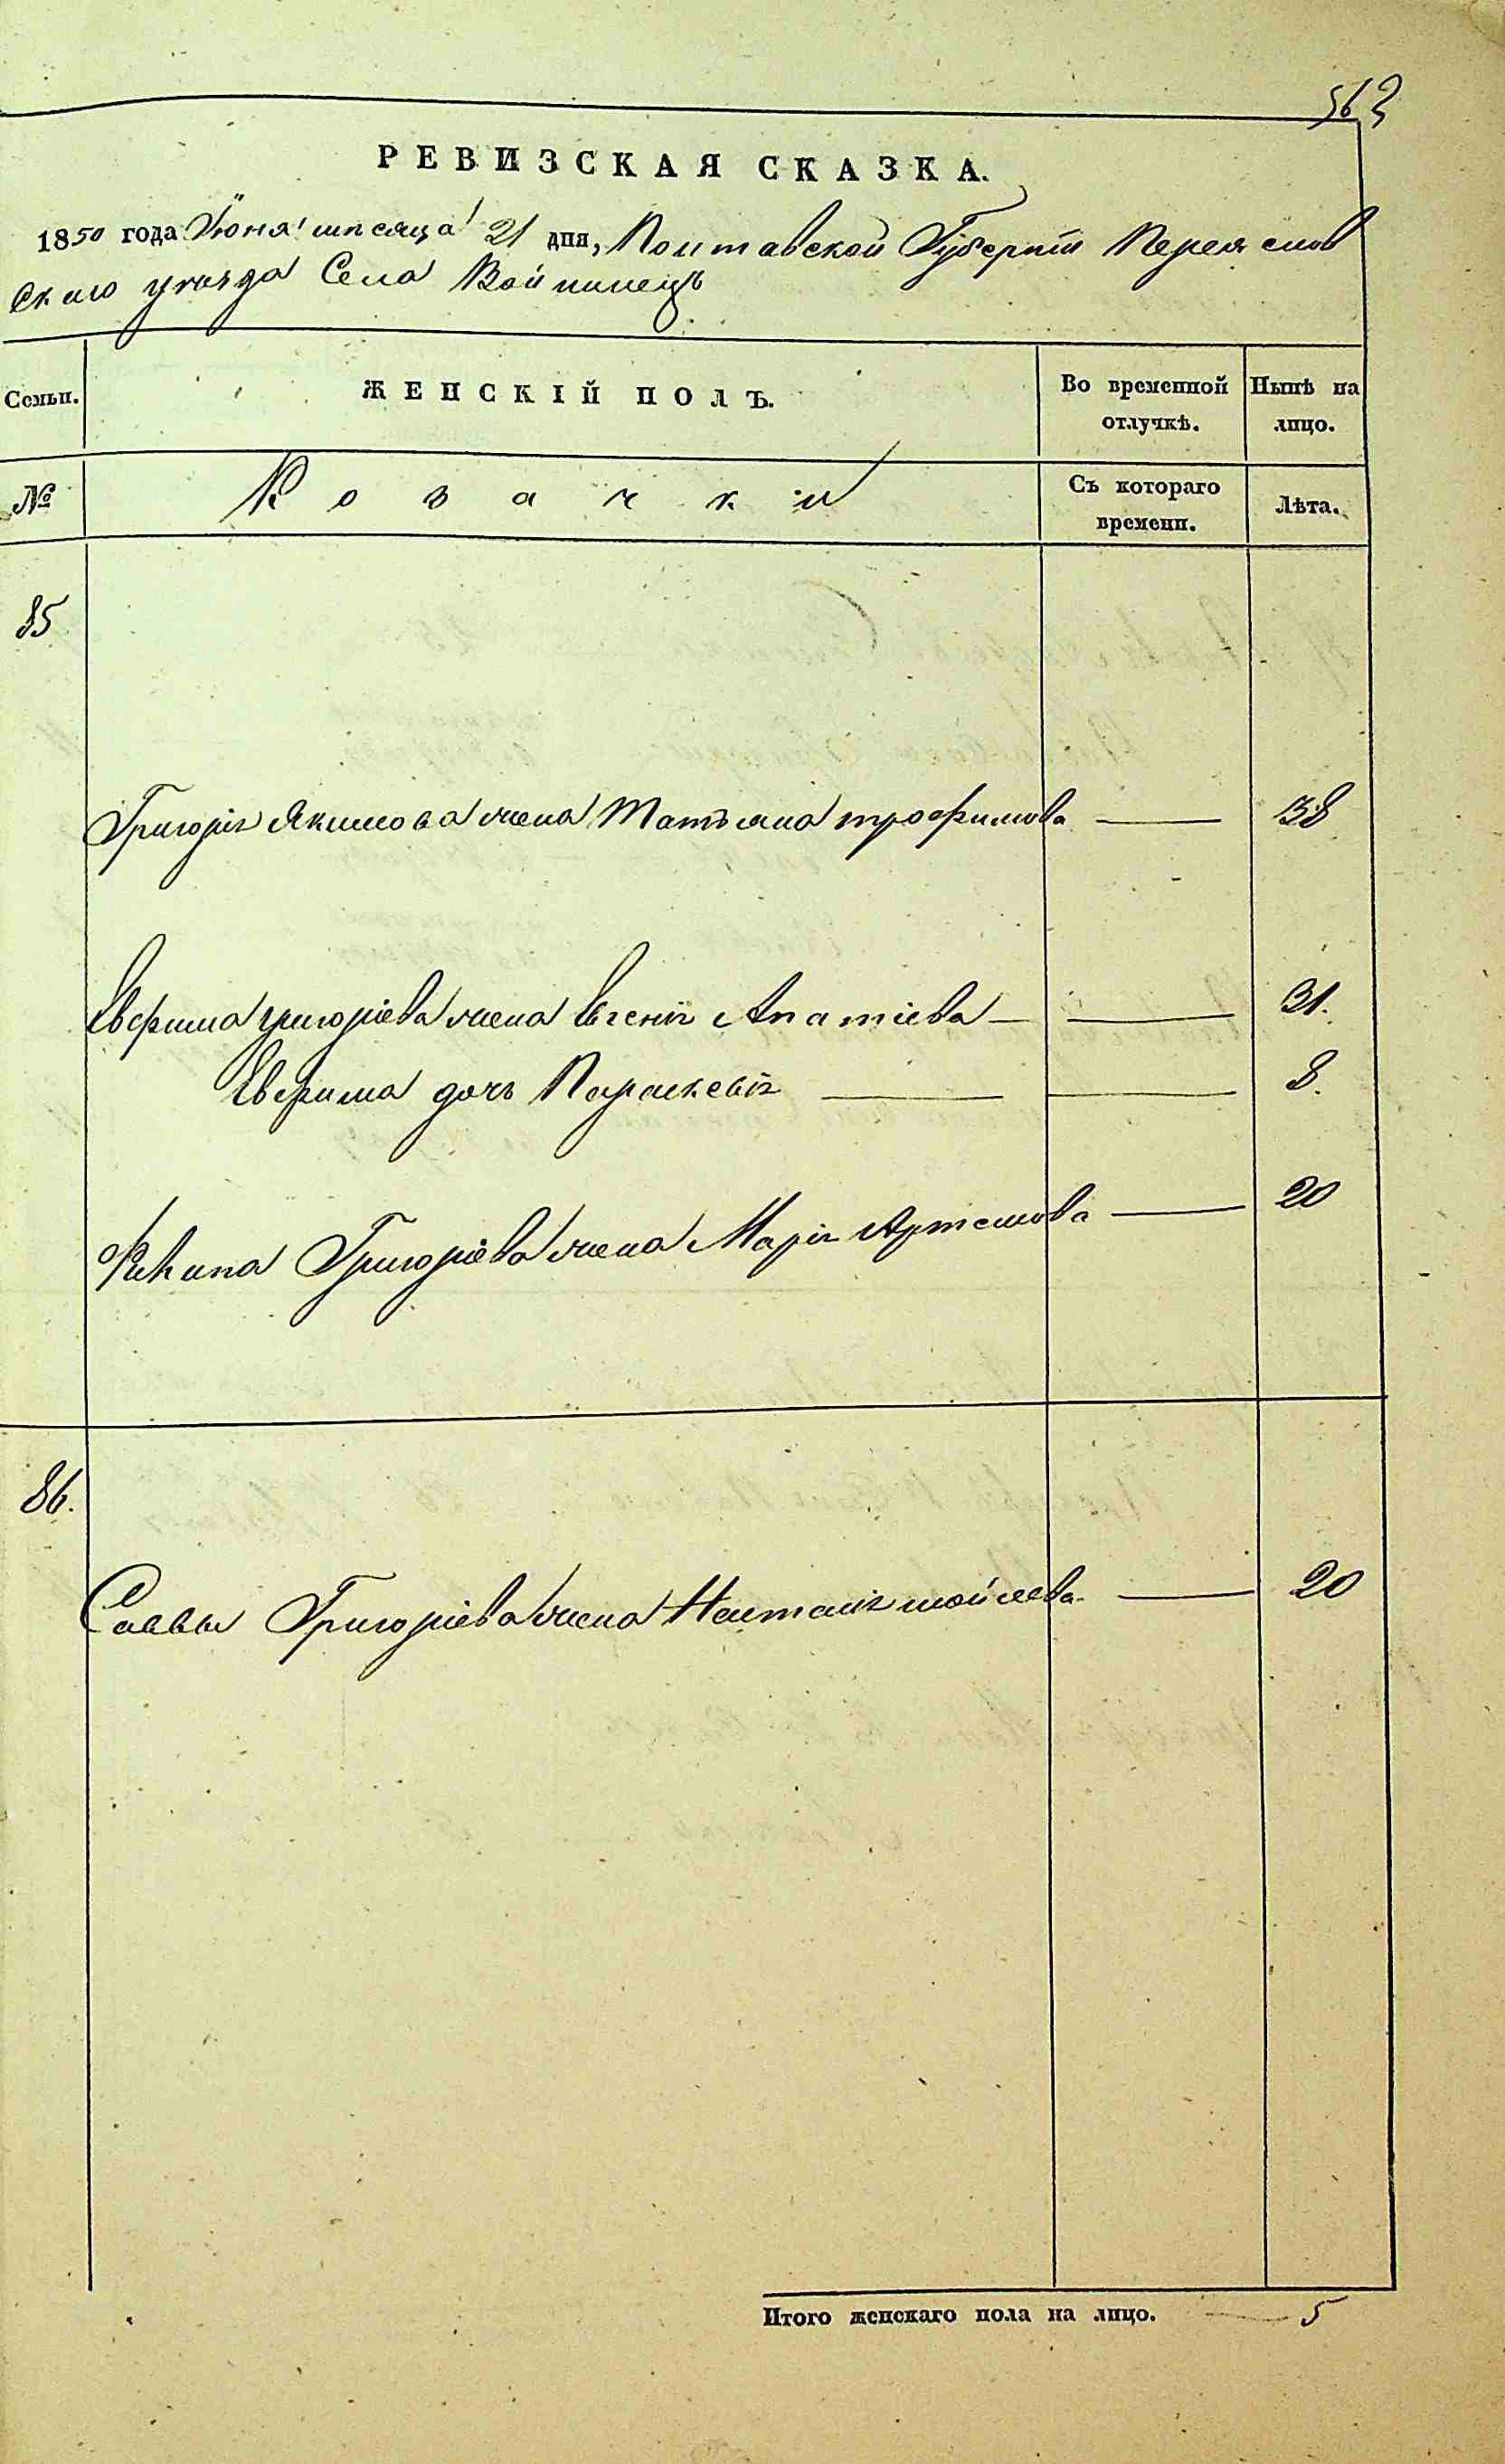 563
РЕВИЗСКАЯ СКАЗКА.
1850 года Июня мѣсяца 21 дня, Полтавской Губерніи Переяслов
скаго уѣзда Села Войтовецъ
Семьи. ЖЕНСКІЙ ПОЛЪ. Во временной отлучкѣ. Нынѣ на лицо.
№ Козачки Съ котораго времени. Лѣта.
85
Григорія Якимова жена Татьяна трофимова 38
Евфима григоріева жена Евгенія Апатіева 31.
Евфима дочь Параскевія 8.
Григоріева жена Марія Артемова 20
86.
Саввы Григоріева жена Наталія мойсеева 20
Итого женскаго пола на лицо. 5